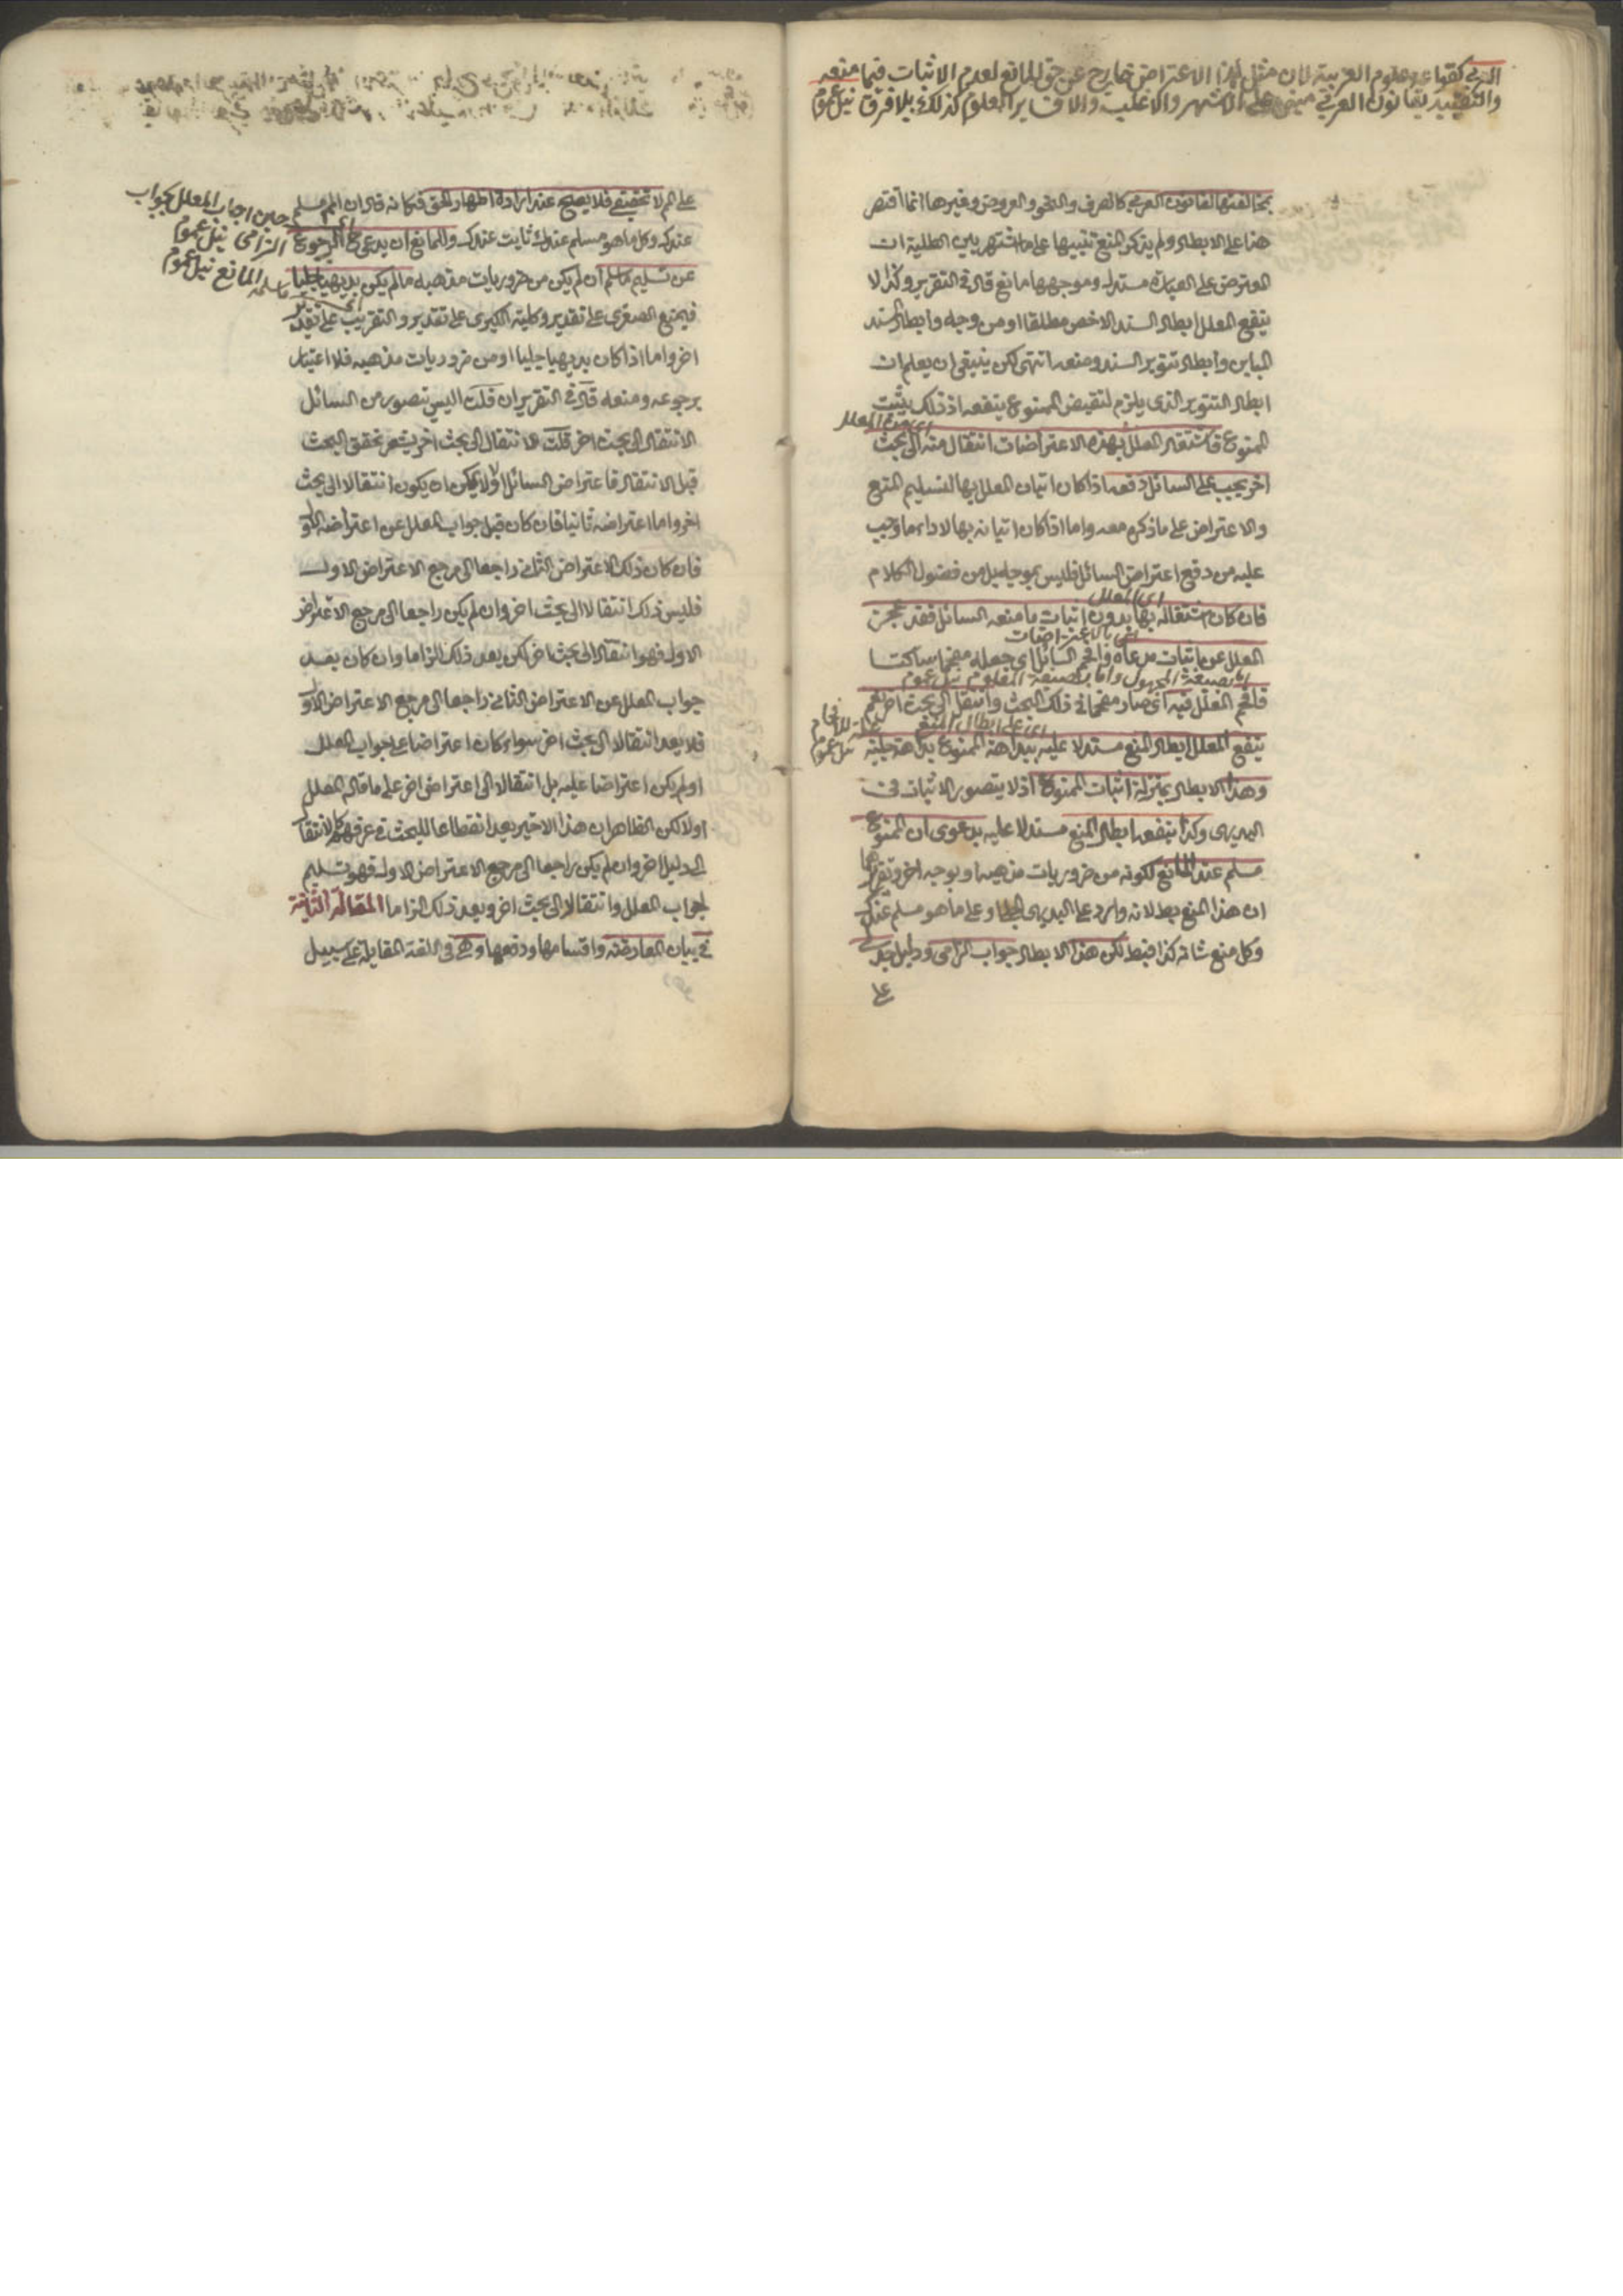 العربي كقواعد علوم العربية لان مثل هذا الاعتراض خارج عن حق المانع لعدم الاثبات فيما منعه
والتقييد بقانون العربي مبني على الاشهر والاغلب والا فسائر العلوم كذلك بلا فرق نيل عموم
بمخالفتها لقانون العربي كالصرف والنحو والعروض وغيرها انما اقتصر
هنا على الابطال ولم يذكر المنع تنبيها على ما اشتهر بين الطلبة ان
المعترض على العبارة مستدل وموجهها مانع قال في التقرير وكذا لا
ينفع المعلل ابطال السند الاخص مطلقا او من وجه وابطال السند
المباين وابطال تنوير السند ومنعه انتهى لكن ينبغي ان يعلم ان
ابطال التنوير الذي يلزم لنقيض الممنوع ينفعه اذ ذلك يثبت
الممنوع فاشتغال المعلل بهذه الاعتراضات انتقال منه الى بحث
اخر يجب على السائل دفعه اذا كان اتيان المعلل بها لتسليم المنع
والاعتراض على ما ذكر معه واما اذا كان اتيانه بها لاداء ما وجب
عليه من دفع اعتراض السائل فليس بموجه بل من فضول الكلام
اي المعلل
فان كان اشتغاله بها بدون اثبات ما منعه السائل فقد عجز
المعلل عن اثبات مدعاه وافحم السائل اي جعله مفحما ساكتا
اما بصيغة المجهول واما بصيغة المعلوم نيل عموم
فافحم المعلل فيه اي صار مفحما في ذلك البحث وانتقل الى بحث اخر نعم
اي على ابطال المنع
ينفع المعلل ابطال المنع مستدلا عليه ببداهة الممنوع بداهة جلية
وهذا الابطال بمنزلة اثبات الممنوع اذ لا يتصور الاثبات في
البديهي وكذا ينفعه ابطال المنع مستدلا عليه بدعوى ان الممنوع
مسلم عند المانع لكونه من ضروريات مذهبه او بوجه اخر وتقريرها
ان هذا المنع بط لانه وارد على البديهي الجلي او على ما هو مسلم عندك
وكل منع شانه كذا فبط لكن هذا الابطال جواب الزامي ودليل جدلي
على
على المـ لا تحقيقي فلا يصح عند ارادة اظهار الحق فكانه قال ان المـ مسلم
عندك وكل ما هو مسلم عندك ثابت عندك وللمانع ان يدعي ح الرجوع
حين اجاب المعلل بجواب
الزامي نيل عموم
عن تسليم ما سلم ان لم يكن من ضروريات مذهبه ما لم يكن بديهيا جليا
ما سلمه المانع نيل عموم
فيمنع الصغرى على تقدير وكلية الكبرى على تقدير والتقريب على تقدير
اخر واما اذا كان بديهيا جليا او من ضروريات مذهبه فلا اعتبار
برجوعه ومنعه قال في التقرير ان قلت اليس تصور من السائل
الانتقال الى بحث اخر قلت الانتقال الى بحث اخر يشعر تحقق البحث
قبل الانتقال فاعتراض السائل اولا لا يمكن ان يكون انتقالا الى بحث
اخر واما اعتراضه ثانيا فان كان قبل جواب المعلل عن اعتراضه الاول
فان كان ذلك الاعتراض الثاني راجعا الى مرجع الاعتراض الاول
فليس ذلك انتقالا الى بحث اخر وان لم يكن راجعا الى مرجع الاعتراض
الاول فهو انتقال الى بحث اخر لكن يعد ذلك الزاما وان كان بعد
جواب المعلل عن الاعتراض الثاني راجعا الى مرجع الاعتراض الاول
فلا يعد انتقالا الى بحث اخر سواء كان اعتراضا على جواب المعلل
او لم يكن اعتراضا عليه بل انتقالا الى اعتراض اخر على ما قاله المعلل
اولا لكن الظاهر ان هذا الاخير يعد انقطاعا للبحث في عرفهم كالانتقال
الى دليل اخر وان لم يكن راجعا الى مرجع الاعتراض الاول فهو تسليم
لجواب المعلل وانتقال الى بحث اخر ويعد ذلك الزاما المقالة الثانية
في بيان المعارضة واقسامها ودفعها وهي في اللغة المقابلة على سبيل